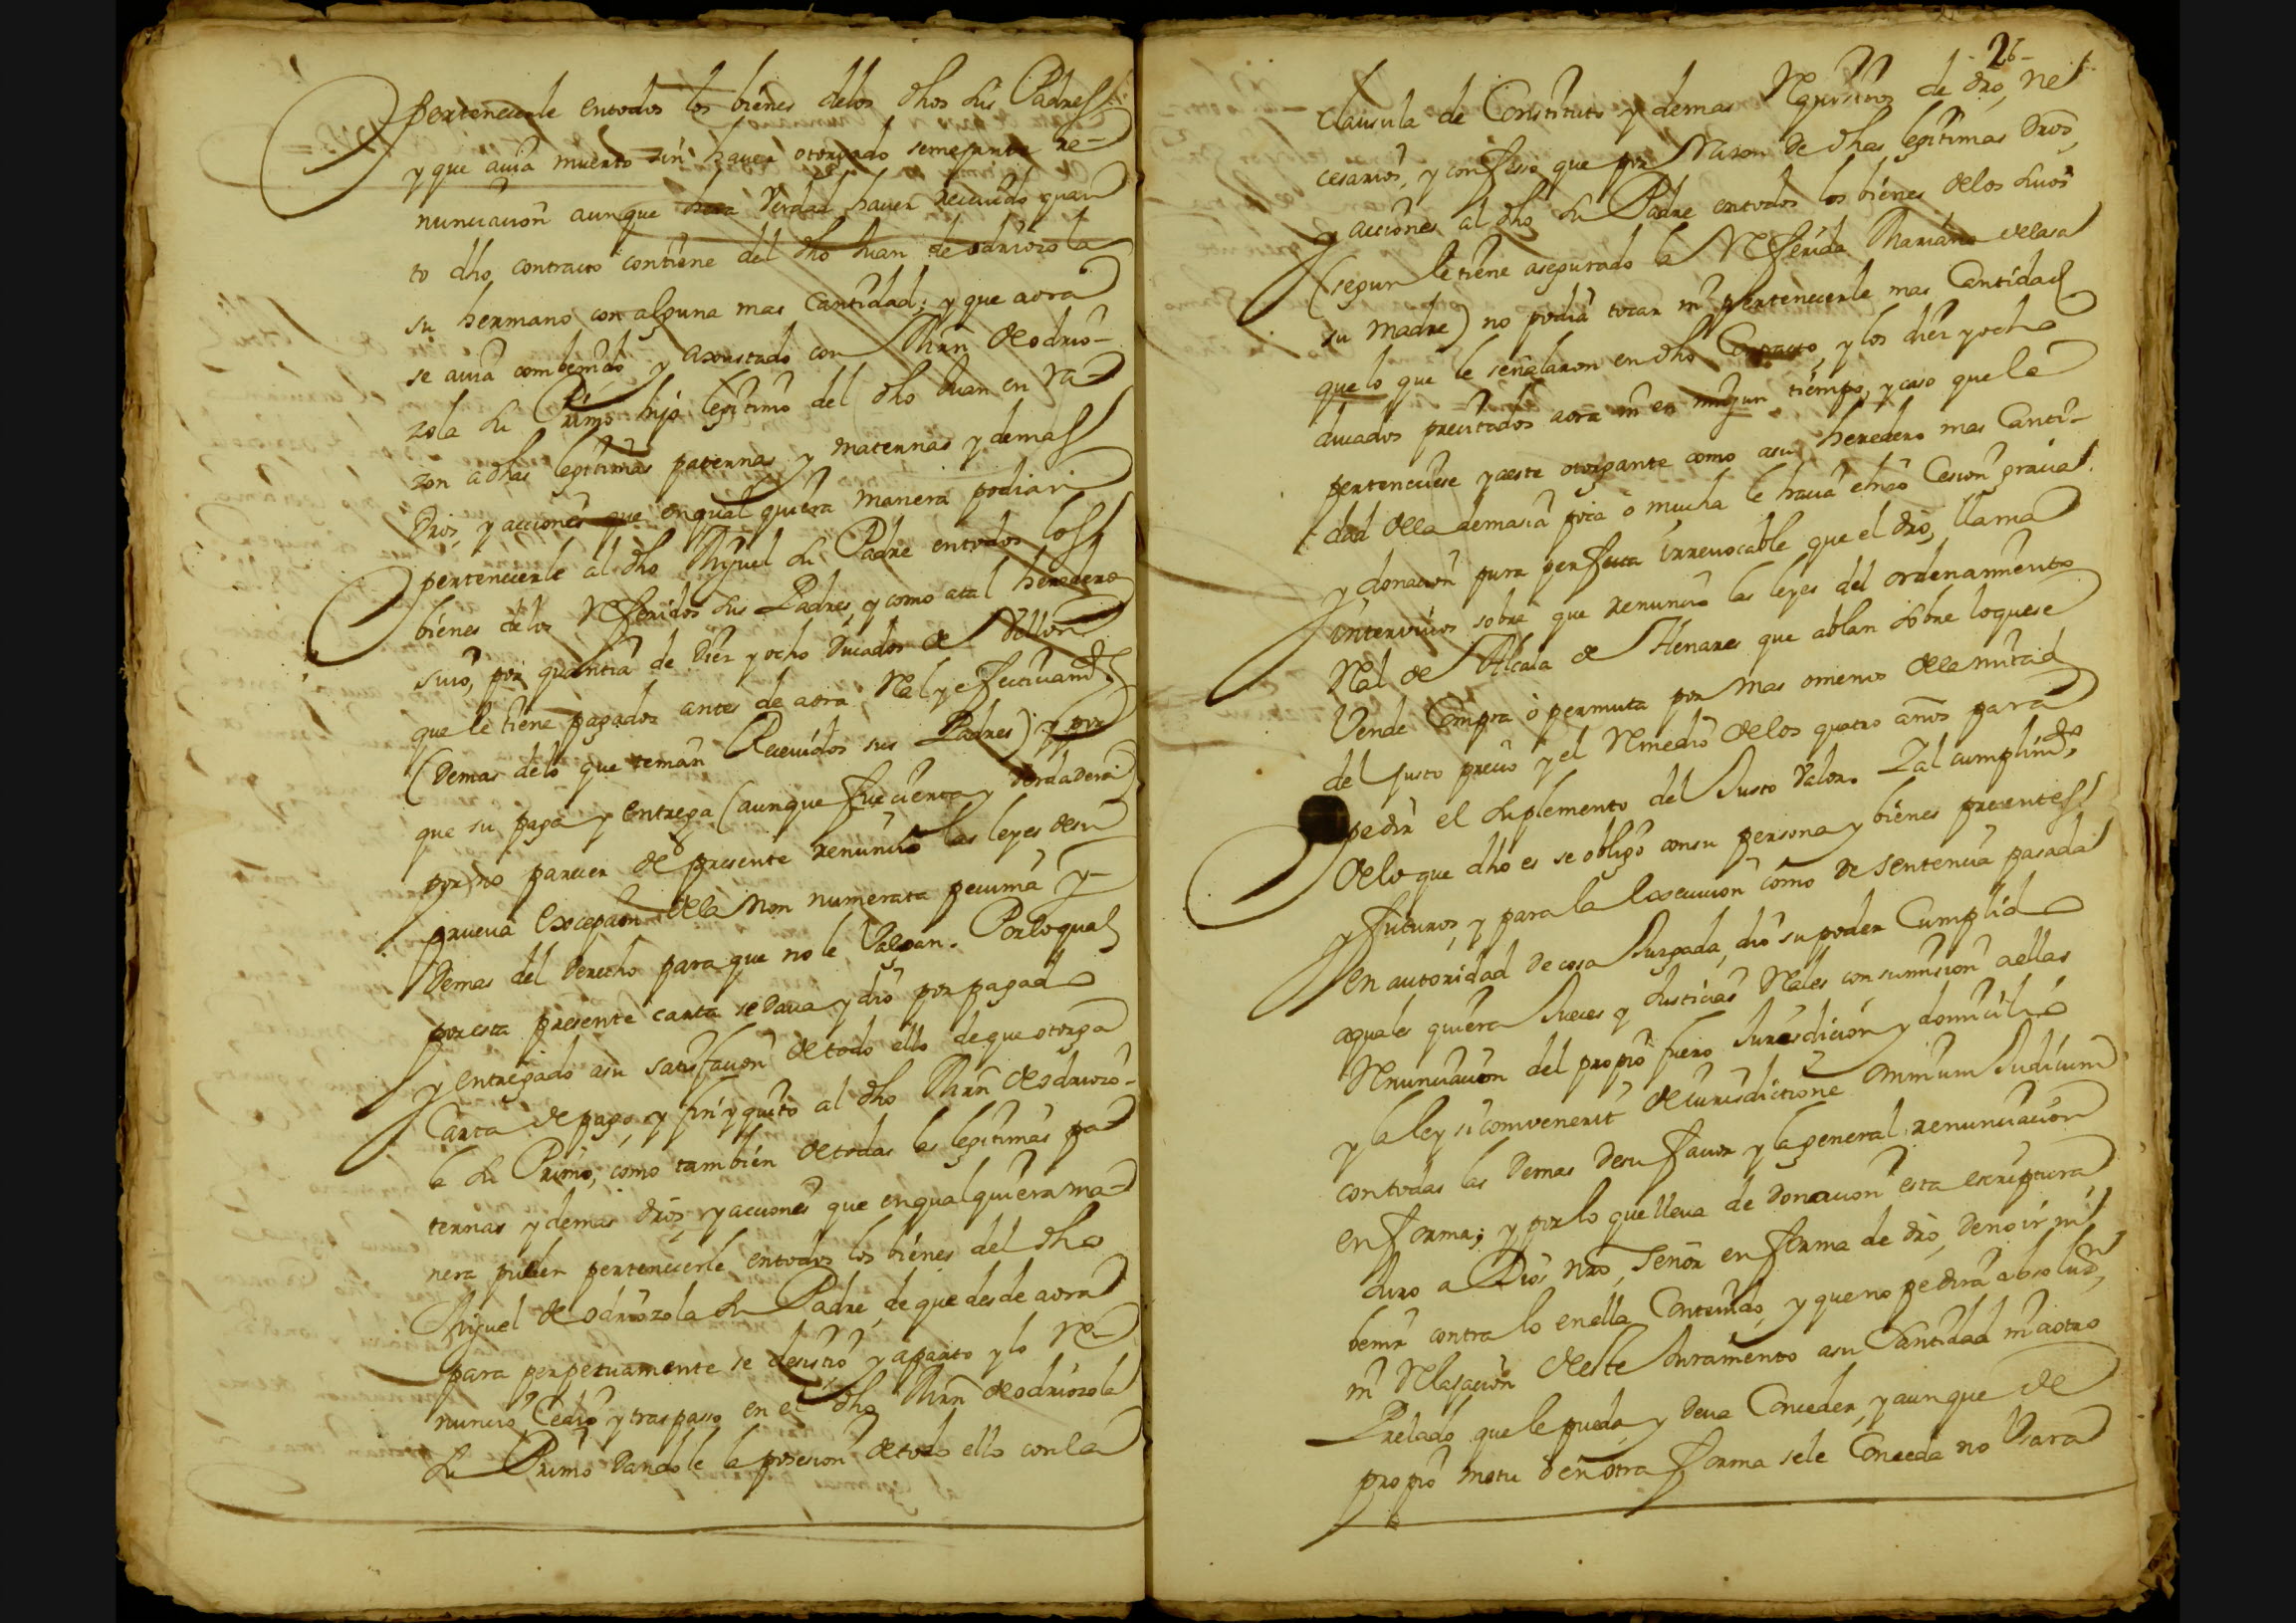 pertenecerle entodos los bienes delos dhos sus Padres
y que auia muerto sin hauer otorgado semejante re-
nunciacion aunque hera Verdad hauer recevido quan
to dho contracto contiene del dho Juan de odriozola
su hermano con alguna mas Cantidad; y que aora
se auia combenido y axustado con Mrn de odrio-
zola su Primo hijo legitimo del dho Juan en ra-
zon a dhas legitimas paternas y maternas y demas
Dros, y acciones que enqual quiera manera podian
pertenecerle al dho Miguel su Padre entodos los
bienes delos Referidos sus Padres, y como atal heredero
suio, por quantia de Diez y ocho Ducados de Vellon
que le tiene pagados antes de aora Real y efectivamte
(Demas delo que tenian Recevidos sus Padres) y por
que su paga y entrega (aunque fue cierta y verdadera)
por no parecer de presente renuncio las leyes desu
prueua excepcion dela non numerata pecunia y
Demas del Derecho para que no le Valgan. Porloqual
por esta presente carta se Daua y dio por pagado
y entregado asu satisfacion de todo ello de que otorga
Carta de pago y fin y quito al dho Mrn de odriozo-
la su Primo, como tambien detodas las legitimas pa
ternas y demas dros y acciones que en qual quiera ma-
nera puden pertenecerle entodos los bienes del dho
Miguel de odriozola su Padre, de que des de aora
para perpetuamente se desistio y aparto y lo re-
nuncio Cedio y traspasso en el dho Mrn de odriozola
su Primo Dandole la posesion de todo ello con la
26-
Clausula de Constituto y demas Requisitos de dro, ne
cesarios, y confesso que por Razon de dhas legitimas Dros,
y acciones al dho su Padre entodos los bienes delos suios
(segun le tiene asegurado la Referida Mariana
su madre) no podia tocar ni pertenecerle mas Cantidad
que lo que le señalaron en dho Contracto, y los diez y ocho
ducados precitados aora ni en ningun tiempo, y caso que le
perteneciese y aeste otorgante como asu heredero mas Canti-
dad della demasia poca o mucha le hacia e hizo Cesion gracia
y donacion pura perfecta irrevocable que el dro, llama
intervivos sobre que renuncio las leyes del ordenamiento
Real de Alcala de Henares que ablan sobre loque se
Vende Compra o permuta por mas omenos dela mitad
del justo precio y el Remedio delos quatro años para
pedir el suplemento del Justo Valor. Y al cumplimto
delo que dho es se obligo consu persona y bienes presentes
y futuros, y para la execucion como de sentencia pasada
en autoridad de cosa Juzgada, dio su poder Cumplido
aquales quiera Jueces y Justicias Reales con sumision aellas
Renunciacion del propio fuero Jurisdicion y domicilio
y la ley si convenerit de iurisdictione omnium Judicum
contodas las Demas desu fauor y la general renunciacion
en forma; y por lo que lleua de Donacion esta escriptura
Juro a Dios nro, Señor en forma de dro, de no ir ni
benir contra lo en ella Contenido, y que no pedira absolucn,
ni Relajacion deste Juramento asu Santidad ni aotro
Prelado que le pueda y Deua Conceder, y aunque de
propio motu o en otra forma sele Conceda no Vsara